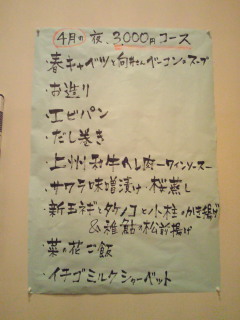 4月の夜 3,000円コース
・春キャベツと向井さんベーコンのスープ
・お造り
・エビパン
・だし巻き
・上州和牛ヘレ肉 ーワインソースー
・サワラ味噌漬け 桜蒸し
・新玉ネギとタケノコと小柱のかき揚げ
&稚鮎の松前揚げ
・菜の花ご飯
・イチゴミルクシャーベット